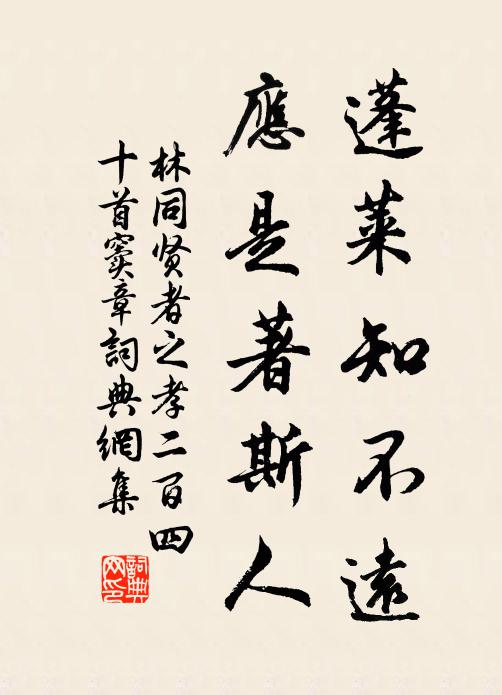 蓬莱知不遠
應是著斯人
林同贤者之孝二百四
十首竇章詞典網集
詞典网印